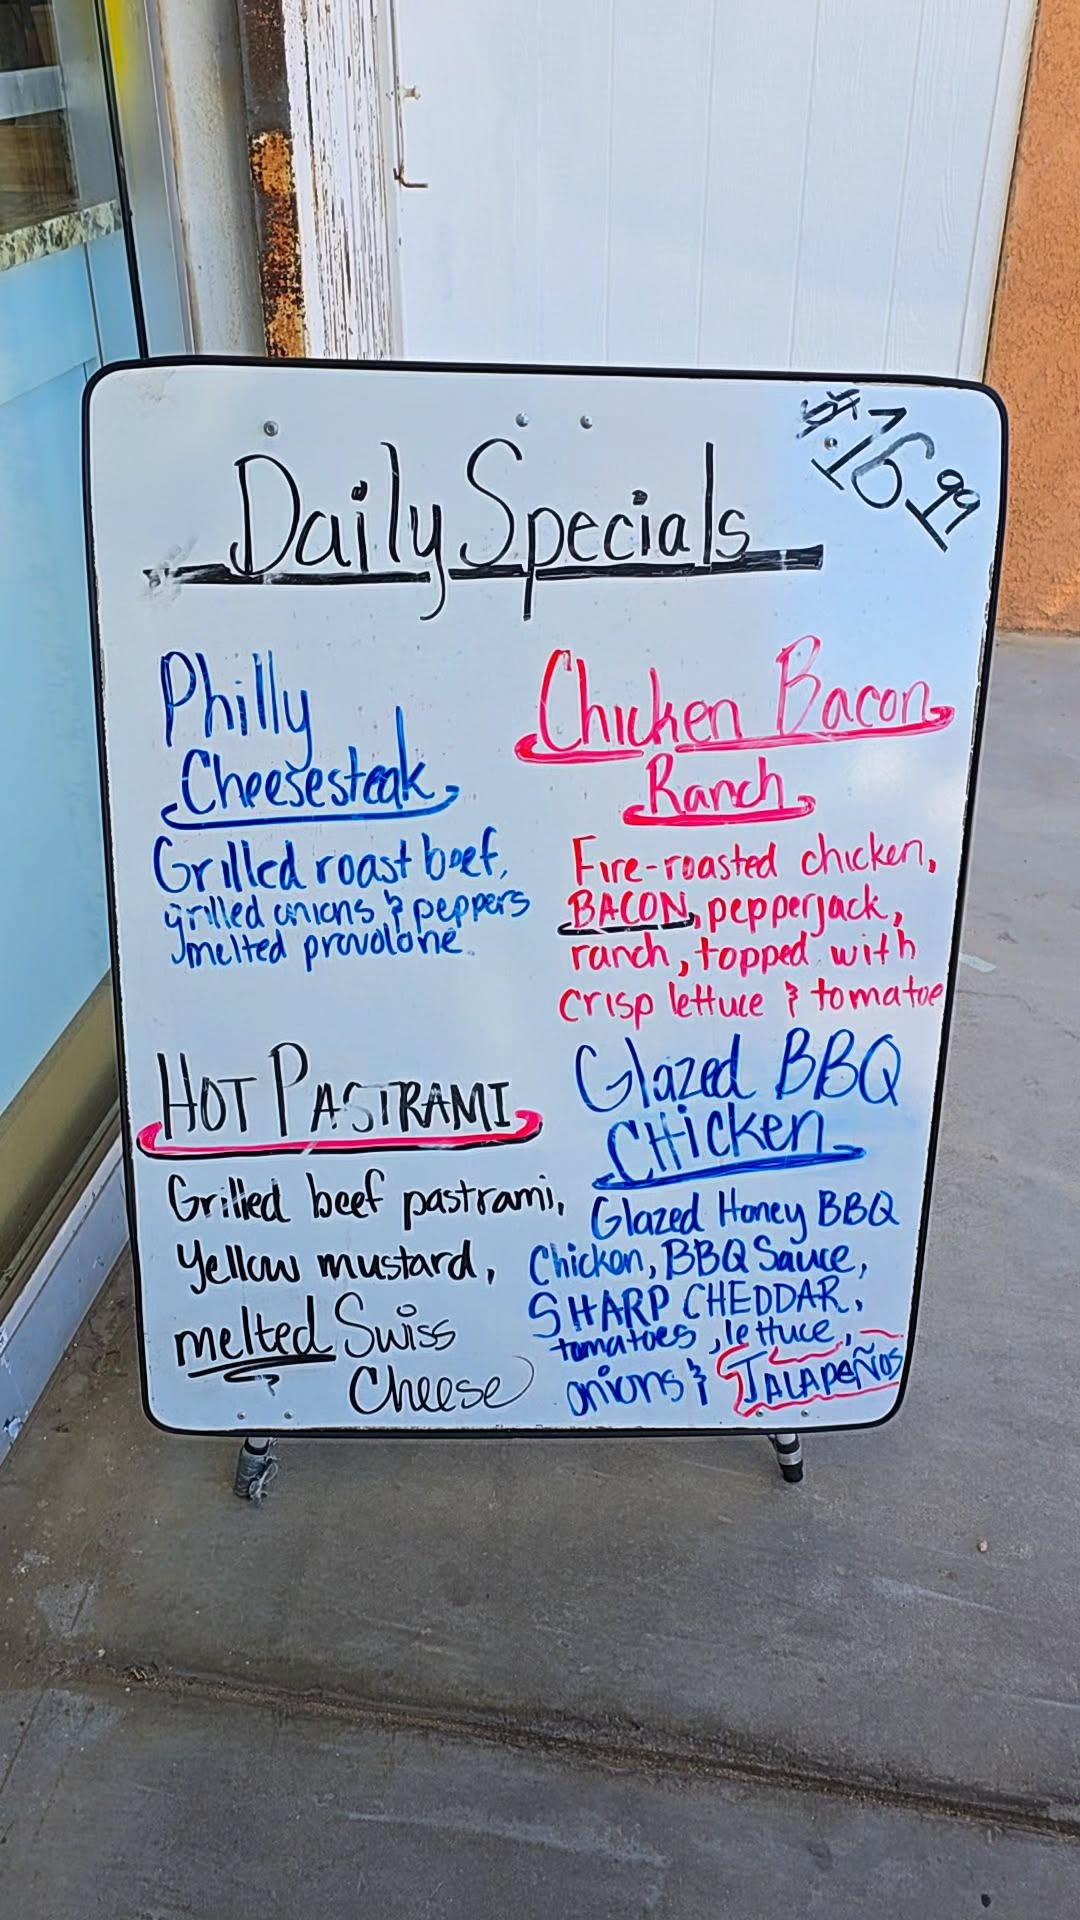 $.16.99
Daily Specials
Philly
Cheesesteak
Grilled roast beef,
grilled onions & peppers
melted provolone.
Chicken Bacon
Ranch
Fire-roasted chicken,
BACON, pepperjack,
ranch, topped with
crisp lettuce & tomatoe
HOT PASTRAMI
Grilled beef pastrami,
Yellow mustard,
melted Swiss
Cheese
Glazed BBQ
CHicken
Glazed Honey BBQ
Chicken, BBQ Sauce,
SHARP CHEDDAR,
tomatoes, lettuce,
onions & JALAPEÑOS